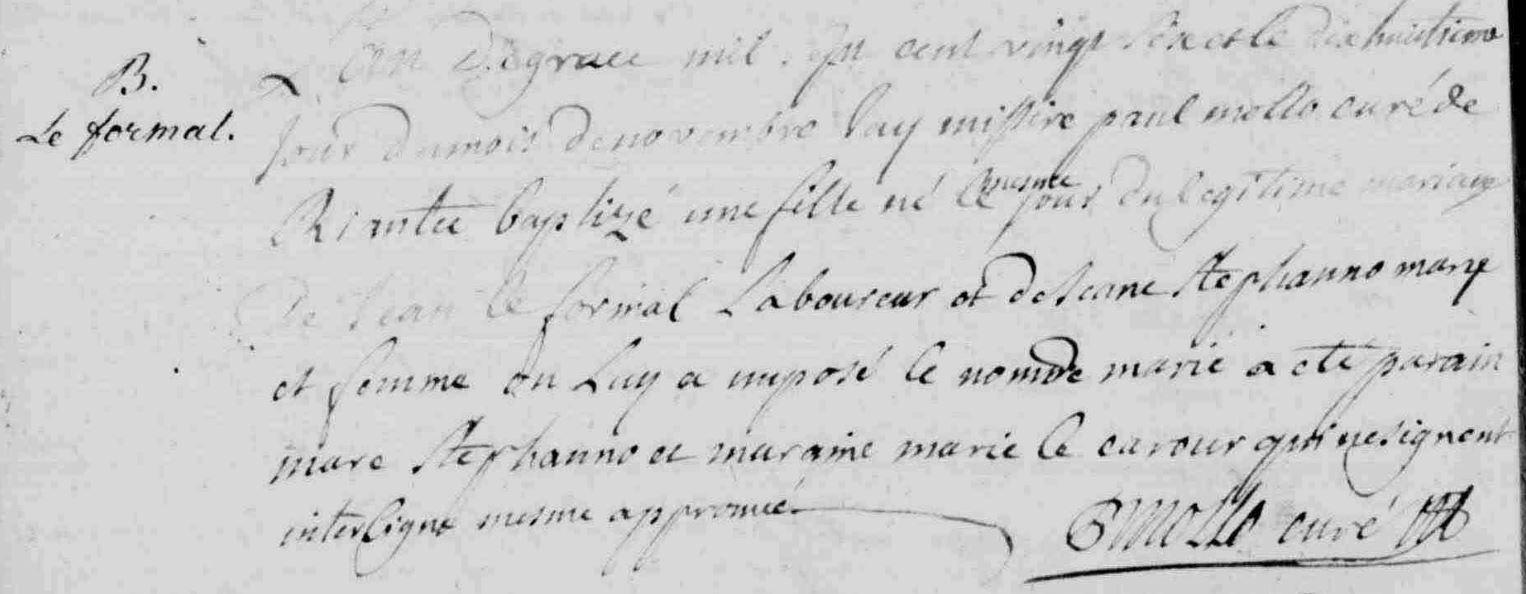 B.
Le formal.
L'An de grace mil sept cent vingt six et le dixhuitieme
jour du mois de novembre J'ay missire paul mollo curé de
Riantec baptizé une fille né le mesme jour du legitime mariage
de Jean le formal Laboureur et de Jeane Stephanno mary
et femme on Luy a imposé le nom de marie a eté parain
marc Stephanno et maraine marie le carour qui ne signent
interligne mesme approuvé
P Mollo curé